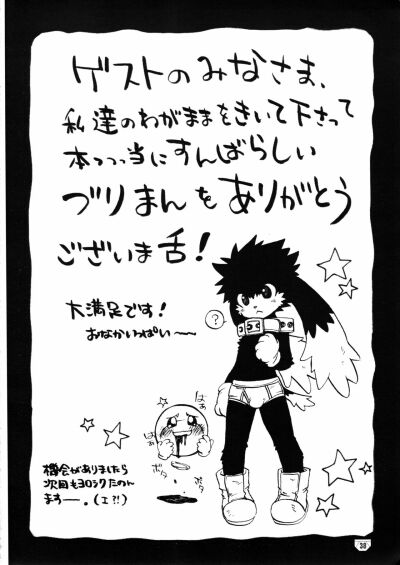 ゲストのみなさま、
私達のわがままをきいて下さって
本っっっ当にすんばらしい
づりまんをありがとう
ございま舌!
大満足です!
おなかいっぱい〜〜
?
はぁ
はぁ
はぁ
ボタ
ボタ
機会がありましたら
次回もヨロシクたのん
ますーー。(ェ?!)
39